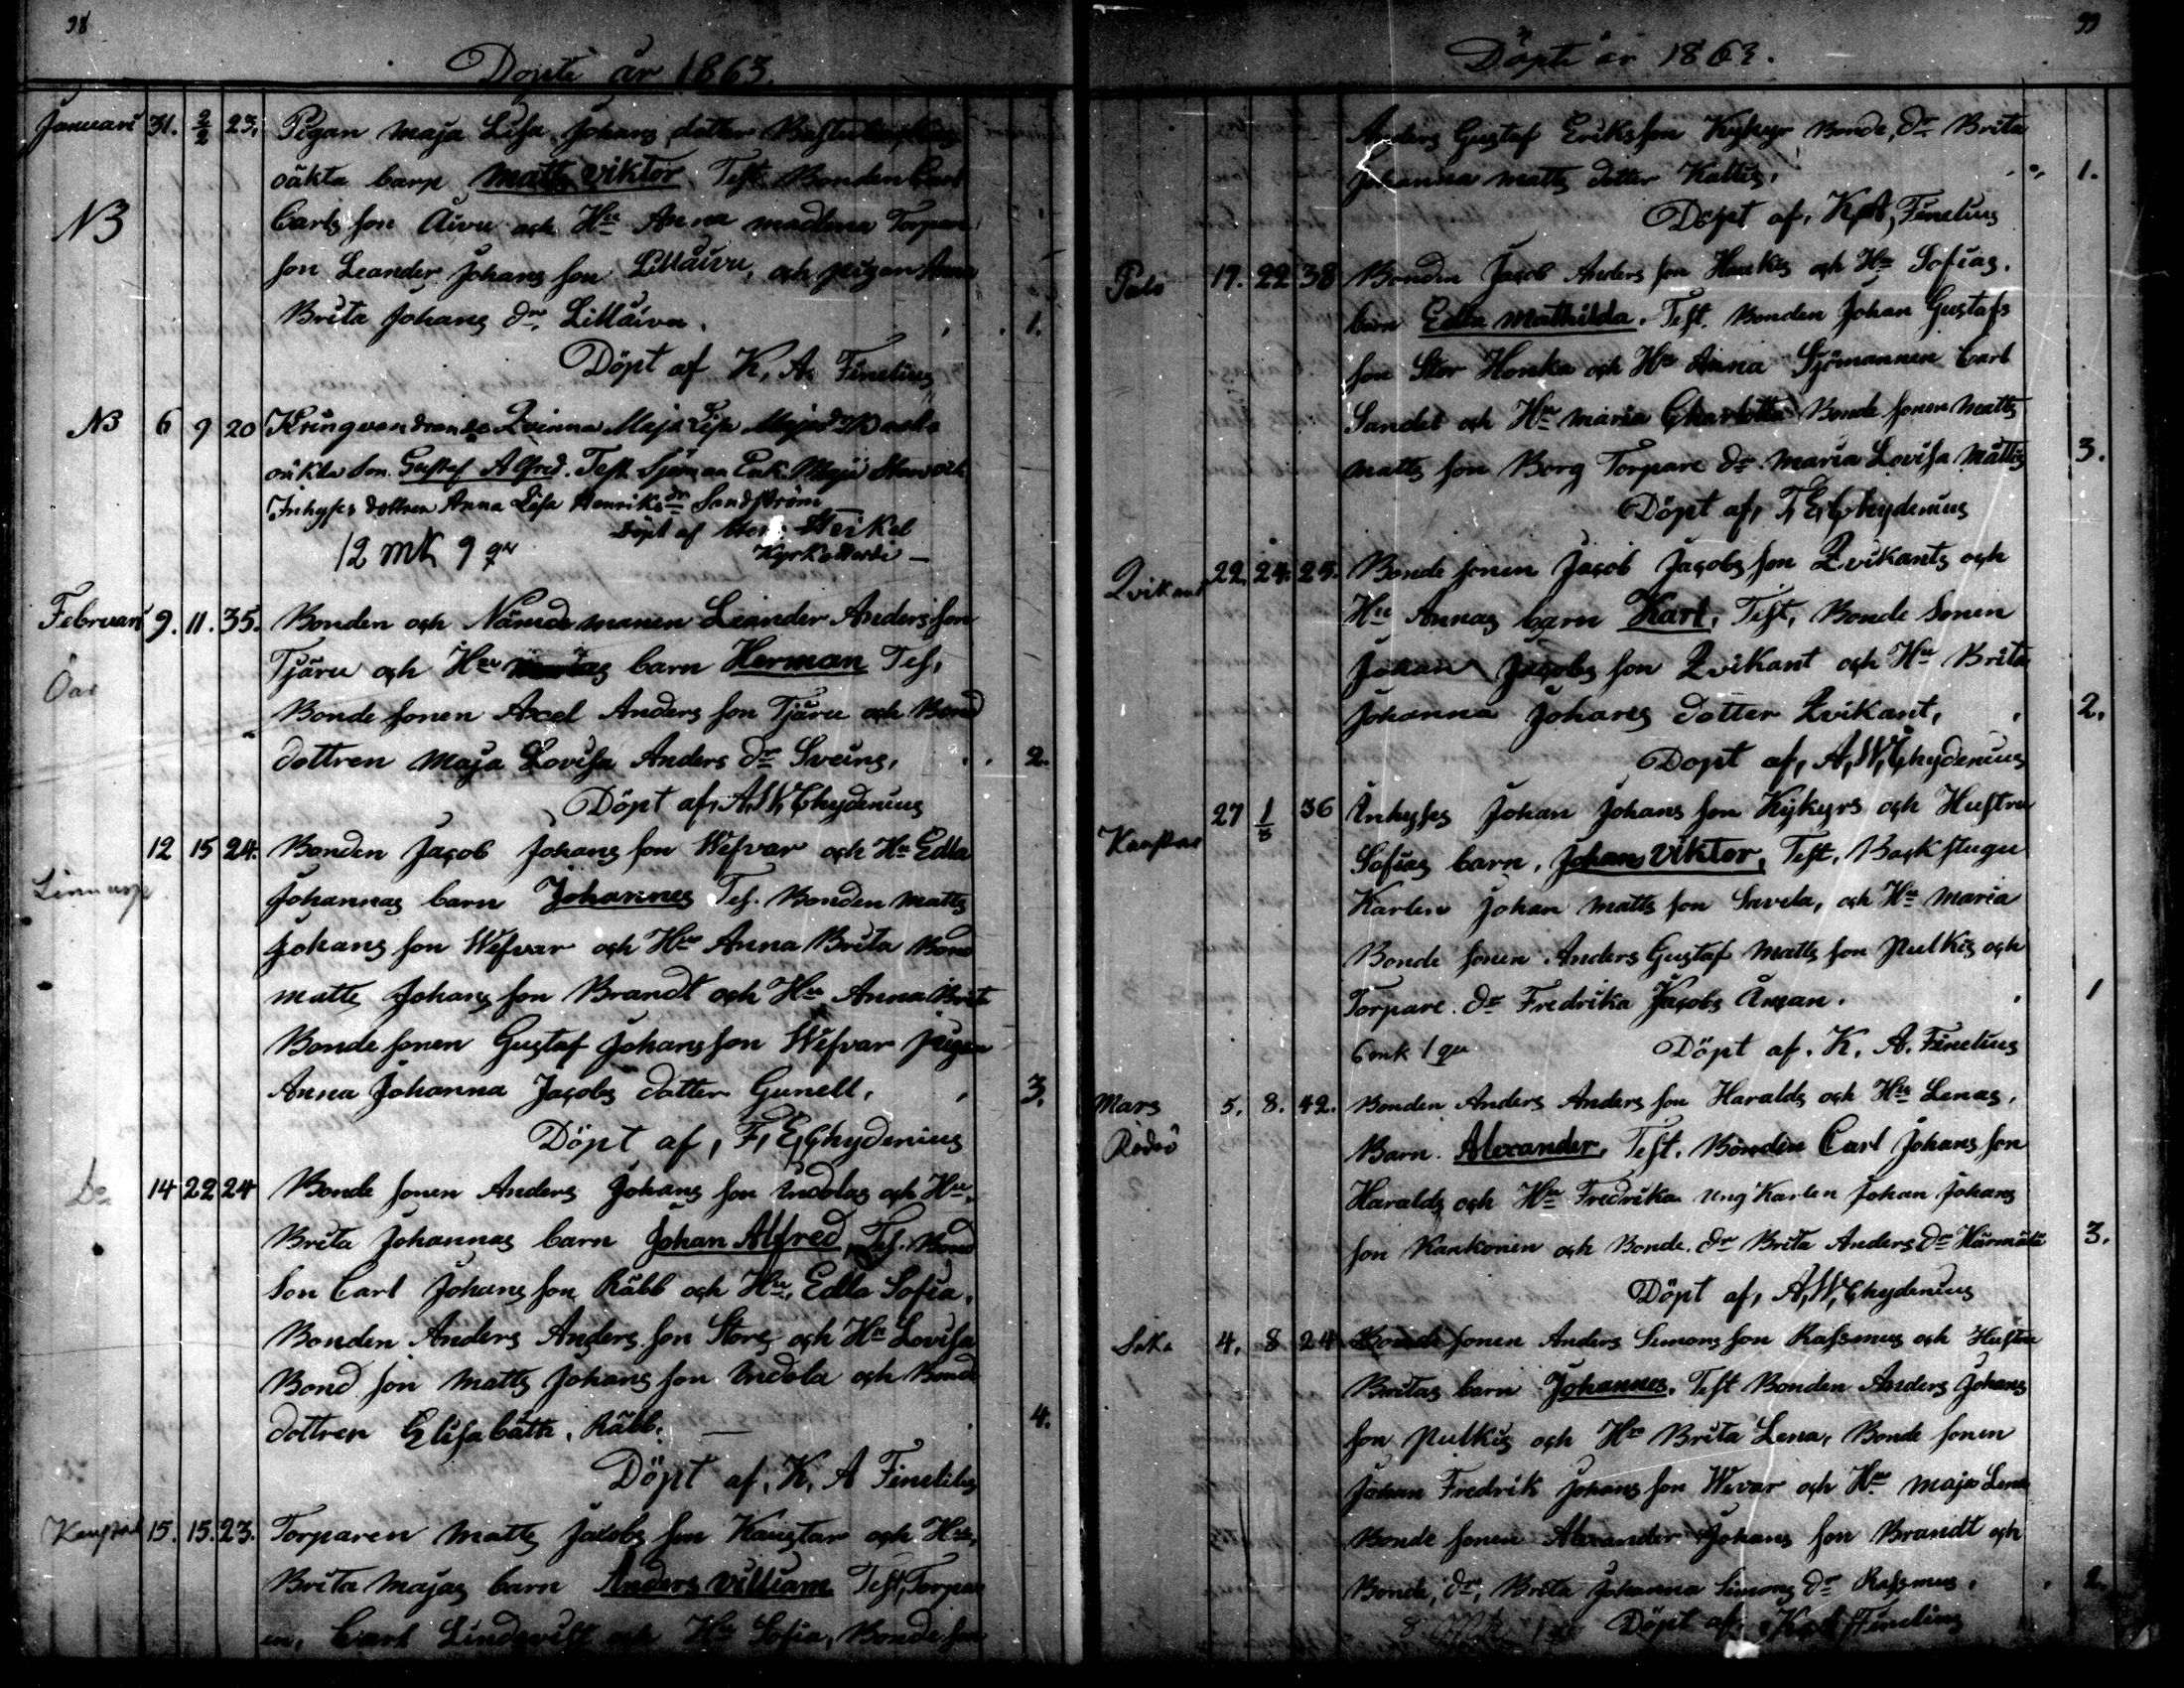 98
Döpte år 1863.
Januari 31. 2/2 23. Pigan Maja Lisa Johans dotter
oäkta barn Matts Viktor Test. Bonden Carl
NB Carls son Aivu och Hu Anna Madlena Torpare
son Leander Johans son Lillaivu, och pigan Anna
Brita Johans dr Lillaivu. 1.
Döpt af K. A. Finelius
NB 6 9 20 Kringvandrande Qvinna Maja Lisa
oäkta Son Gustaf Alfred. Test Sjöman Erik och
Inhyses dottren Anna Lisa Henriks dr Sandström
Döpt af Heikel
12 mk 9 qr Kyrkoherde —
Februari 9. 11. 35. Bonden och Nämdemannen Leander Anders son
Öar Tjäru och Hu barn Herman Tes.
Bonde sonen Axel Anders son Tjäru och Bond
dottren Maja Lovisa Anders dr Sveins, 2.
Döpt af, A. W. Chydenius
12 15 24. Bonden Jacob Johans son Wefvar och Hu Edla
Johannas barn Johannes Tes. Bonden Matts
Johans son Wefvar och Hu Anna Brita Bond
Matts Johans son Brandt och Hu Anna Brita
Bonde sonen Gustaf Johans son Wefvar pigan
Anna Johanna Jacobs dotter Gunell. 3.
Döpt af, F. E. Chydenius
Do 14 22 24 Bonde sonen Anders Johans son Indolas och Hu
Brita Johannas barn Johan Alfred Tes. Bond
Son Carl Johans son Räbb och Hu, Edla Sofia,
Bonden Anders Anders son Store och Hu Lovisa
Bond son Matts Johans son Indola och Bond
dottren Elisabäth. Räbb. — 4.
Döpt af, K. A Finelius
Kaustar 15. 15. 23. Torparen Matts Jacobs son Kaustar och Hu,
Brita Majas barn Anders Villiam Test, Torpar
en, Carl Lindqvist och Hu Sofia, Bonde son
99
Döpte år 1863.
Anders Gustaf Eriks son Kykyr Bonde, dr Brita
Johanna Matts dotter Kattis. 1.
Döpt af, K. A. Finelius
Palo 17. 22 38 Bonden Jacob Anders son Honkas och Hu Sofias.
barn Edla Mathilda. Test. Bonden Johan Gustafs
son Stor Honka och Hu Anna Sjömannen Carl
Sandel och Hu Maria Charlotta Bonde sonen Matts
Matts son Borg Torpare dr Maria Lovisa Mattis 3.
Döpt af, F. E. Chydenius
Qvikant 22. 24. 25. Bonde sonen Jacob Jacobs son Qvikants och
Hu Annas barn Karl, Test, Bonde Sonen
Johan Jacobs son Qvikant och Hu Brita
Johanna Johans dotter Qvikant, 2.
Döpt af, A. W. Chydenius
Kaustar 27 1/3 36 Inhyses Johan Johans son Kykyrs och Hustru
Sofias barn, Johan Viktor, Test, Backstugu
Karlen Johan Matts son Savela, och Hu Maria
Bonde sonen Anders Gustaf Matts son Pulkis och
Torpare. dr Fredrika Jacobs Åman. 1
6 mk 1 qr Döpt af. K. A. Finelius
Mars 5. 8. 42. Bonden Anders Anders son Haralds och Hu Lenas,
Rödsö Barn. Alexander, Test. Bonden Carl Johans son
Haralds och Hu Fredrika Ung Karlen Johan Johans
son Kankonen och Bonde. dr Brita Anders dr Härmälä 3.
Döpt af, A. W. Chydenius
4. 8 24 Bonde sonen Anders Simons son Rassmus och Hustru
Britas barn Johannes. Test Bonden Anders Johans
son Pulkis och Hu Brita Lena, Bonde sonen
Johan Fredrik Johans son Wevar och Hu Maja Lena
Bonde sonen Alexander Johans son Brandt och
Bonde, dr, Brita Johanna Simons dr Rassmus, 2.
Döpt af, K. A. Finelius